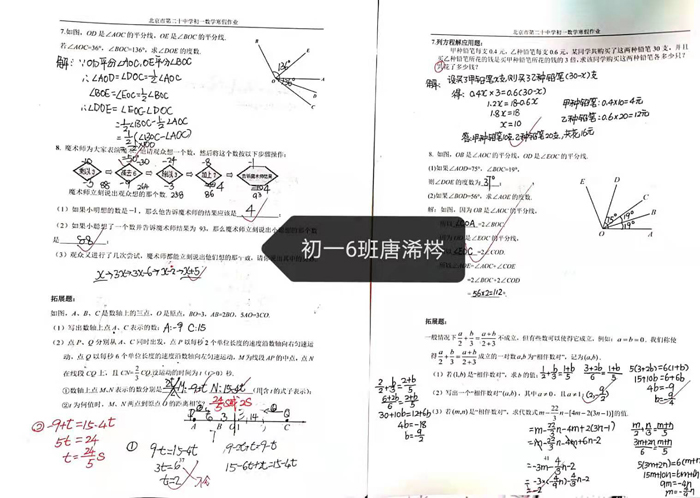 北京市第二十中学初一数学寒假作业
7.如图，OD是∠AOC的平分线，OE是∠BOC的平分线.
若∠AOC=36°，∠BOC=136°，求∠DOE的度数.
解：∵OD平分∠AOC，OE平分∠BOC
∴∠AOD=∠DOC=½∠AOC
∠BOE=∠EOC=½∠BOC
∴∠DOE=∠EOC-∠DOC
=½∠BOC-½∠AOC
=½(∠BOC-∠AOC)
=½×100
=50
8. 魔术师为大家表演魔术
观众想一个数，然后将这个数按以下步骤操作：
魔术师立刻说出观众想的那个数.
(1) 如果小明想的数是-1，那么他告诉魔术师的结果应该是 4
(2) 如果小聪想了一个数并告诉魔术师结果为 93，那么魔术师立刻说出
是 88
(3) 观众又进行了几次尝试，魔术师都能立刻说出他们想的那个数，
x→3x→3x-6→x-2→x+5
拓展题：
如图，A、B、C是数轴上的三点，O是原点，BO=3，AB=2BO，5AO=3CO.
(1) 写出数轴上点A、C表示的数；A:-9 C:15
(2) 点P、Q分别从A、C同时出发，点P以每秒2个单位长度的速度沿数轴向右匀速运
动，点Q以每秒6个单位长度的速度沿数轴向左匀速运动，M为线段AP的中点，点N
在线段CQ上，且CN=2/3CQ.设运动的时间为t(t>0)秒.
①数轴上点M、N表示的数分别是 -9+t N:15-4t (用含t的式子表示)；
②t为何值时，M、N两点到原点O的距离相等？
A B O C
② -9+t=15-4t
5t=24
t=24/5 s
①
9-t=15-4t
3t=6
t=2
初一6班唐浠梣
北京市第二十中学初一数学寒假作业
7.列方程解应用题：
甲种铅笔每支0.4元，乙种铅笔每支0.6元，某同学共购买了这两种铅笔30支，并且
买乙种铅笔所花的钱是买甲种铅笔所花的钱的3倍，求该同学购买这两种铅笔各多少只？
共花了多少钱？
解：设买甲种铅笔x支，则买乙种铅笔(30-x)支
0.4x×3=0.6(30-x)
1.2x=18-0.6x
1.8x=18
x=10
甲种铅笔：0.4×10=4元
乙种铅笔：0.6×20=12元
答：甲种铅笔10支，乙种铅笔20支，共花16元
8. 如图，OB是∠AOC的平分线，OD是∠EOC的平分线.
(1)如果∠AOD=75°，∠BOC=19°，
则∠DOE的度数为 37°
(2)如果∠BOD=56°，求∠AOE的度数.
解：如图，因为OB是∠AOC的平分线，
∠COA=2∠BOC.
因为OD是∠EOC的平分线，
=2∠COD.
所以∠AOE=∠AOC+∠COE
=2∠BOC+2∠COD
=56×2=112
E
D
C
B
A
O
75°
19°
19°
拓展题：
一般情况下a/2+b/3=(a+b)/(2+3)不成立，但有些数可以使得它成立，例如：a=b=0．我们称使
得a/2+b/3=(a+b)/(2+3)成立的一对数a,b为"相伴数对"，记为(a,b)．
(1) 若(1,b)是"相伴数对"，求b的值；
1/2+b/3=(1+b)/5
(3+2b)/6=(1+b)/5
5(3+2b)=6(1+b)
15+10b=6+6b
4b=-9
b=-9/4
(2) 写出一个"相伴数对"(a,b)，其中a≠0，且a≠1
2/2+b/3=(2+b)/5
(6+2b)/6=(2+b)/5
30+10b=12+6b
4b=-18
b=-9/2
(3) 若(m,n)是"相伴数对"，求代数式m-22/3n-[4m-2(3n-1)]的值.
=m-22/3n-4m+2(3n-1)
=m-22/3n-4m+6n-2
=-3m-4/3n-2
m/2+n/3=(m+n)/5
(3m+2n)/6=(m+n)/5